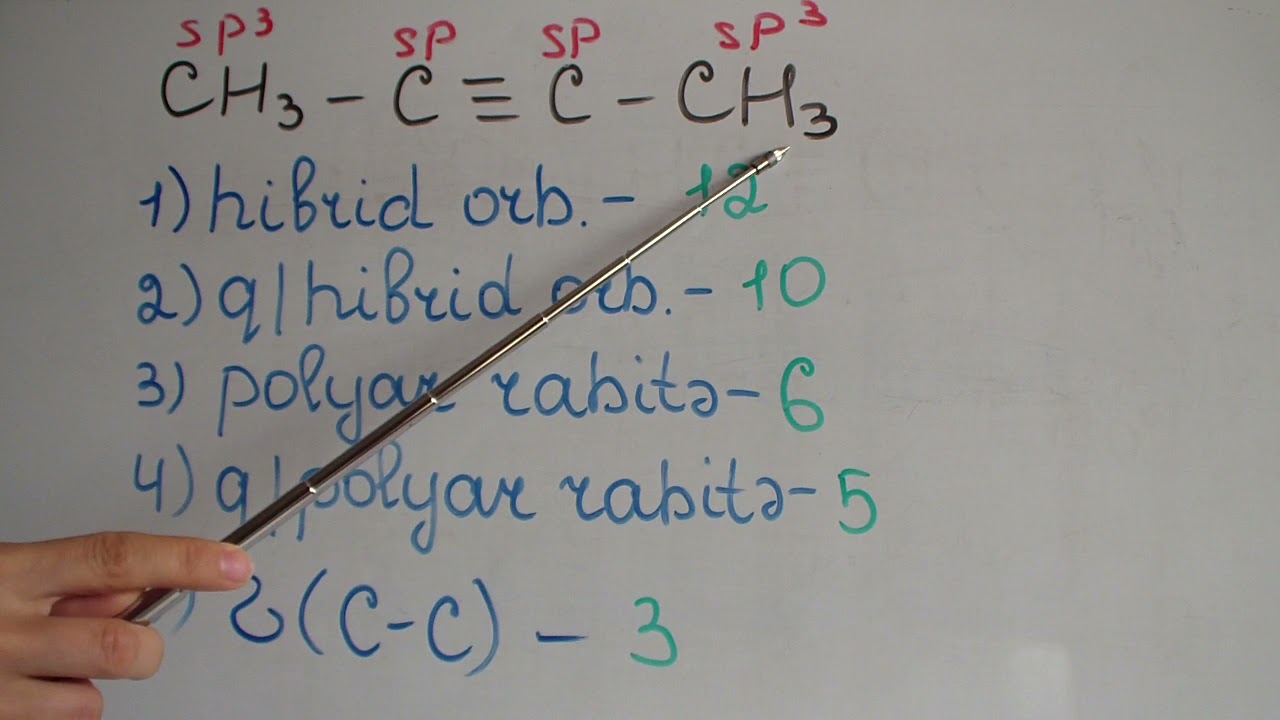 sp³ sp sp sp³
CH₃ – C ≡ C – CH₃
1) hibrid orb. – 12
2) q/hibrid orb. – 10
3) polyar rabitə – 6
4) q/polyar rabitə – 5
(C–C) – 3